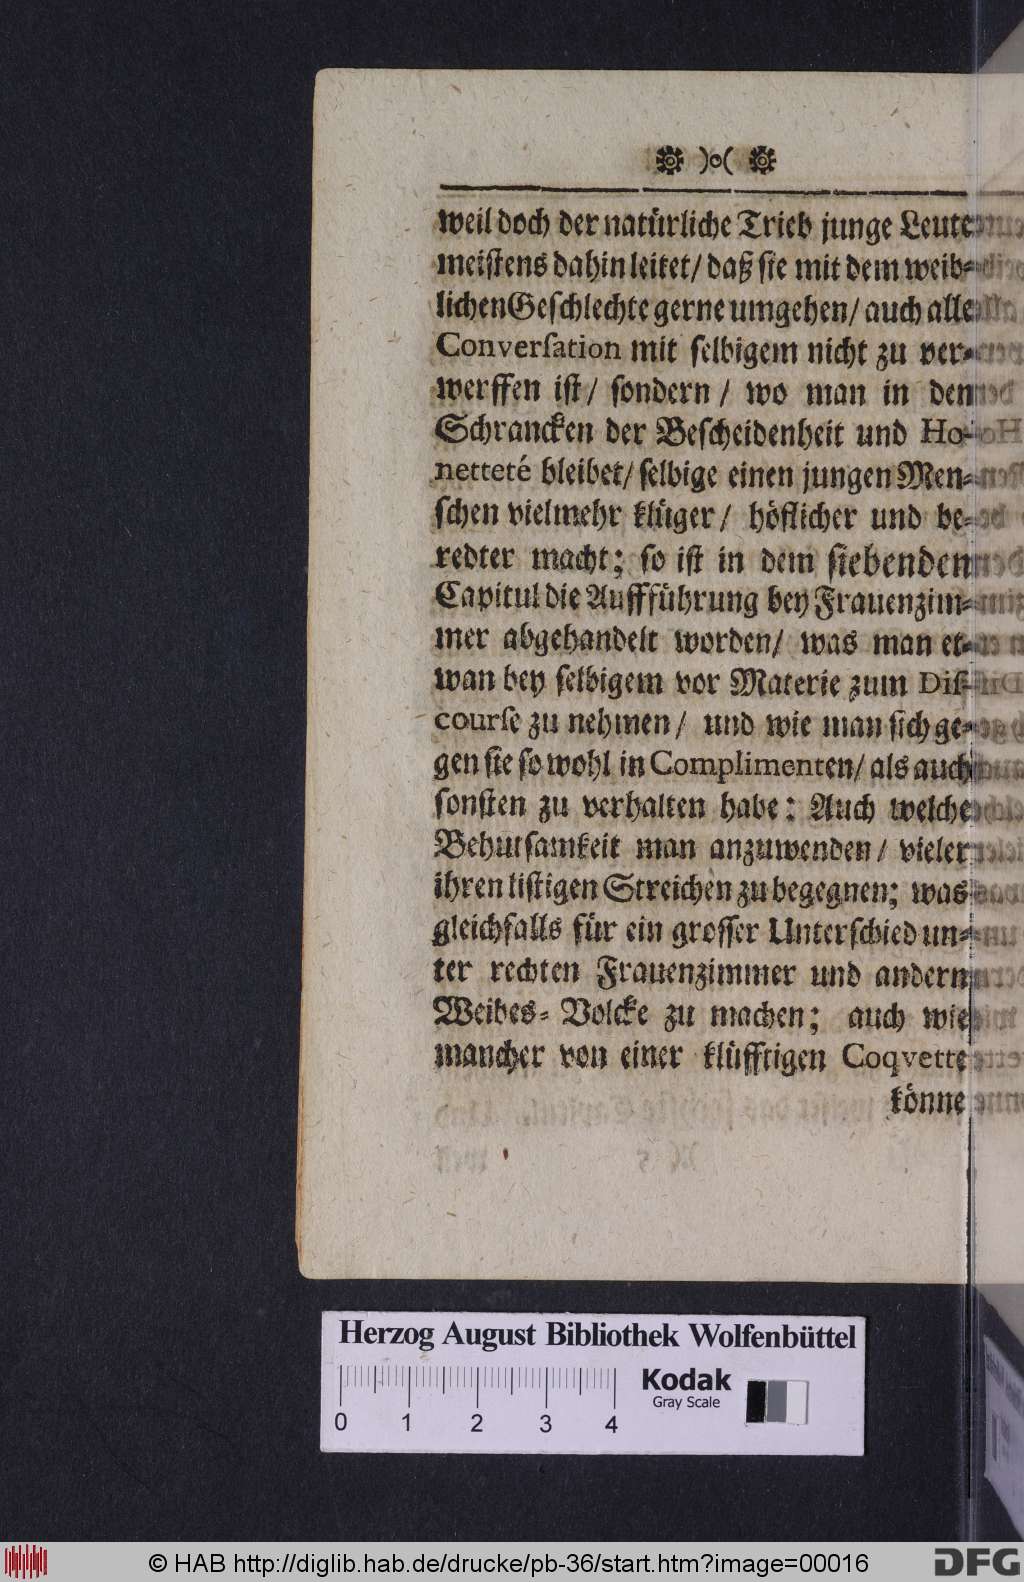 ❁ )o( ❁
weil doch der natürliche Trieb junge Leute
meiſtens dahin leitet/ daß ſie mit dem weib-
lichen Geſchlechte gerne umgehen/ auch alle
Converſation mit ſelbigem nicht zu ver-
werffen iſt/ ſondern/ wo man in den
Schrancken der Beſcheidenheit und Ho-
netteté bleibet/ ſelbige einen jungen Men-
ſchen vielmehr klüger/ höflicher und be-
redter macht; ſo iſt in dem ſiebenden
Capitul die Auffführung bey Frauenzim-
mer abgehandelt worden/ was man et-
wan bey ſelbigem vor Materie zum Diſ-
courſe zu nehmen/ und wie man ſich ge-
gen ſie ſo wohl in Complimenten/ als auch
ſonſten zu verhalten habe: Auch welche
Behutſamkeit man anzuwenden/ vieler
ihren liſtigen Streichen zu begegnen; was
gleichfalls für ein groſſer Unterſchied un-
ter rechten Frauenzimmer und andern
Weibes-Volcke zu machen; auch wie
mancher von einer klüfftigen Coqvette
könne
Herzog August Bibliothek Wolfenbüttel
Kodak
Gray Scale
0 1 2 3 4
© HAB http://diglib.hab.de/drucke/pb-36/start.htm?image=00016
DFG